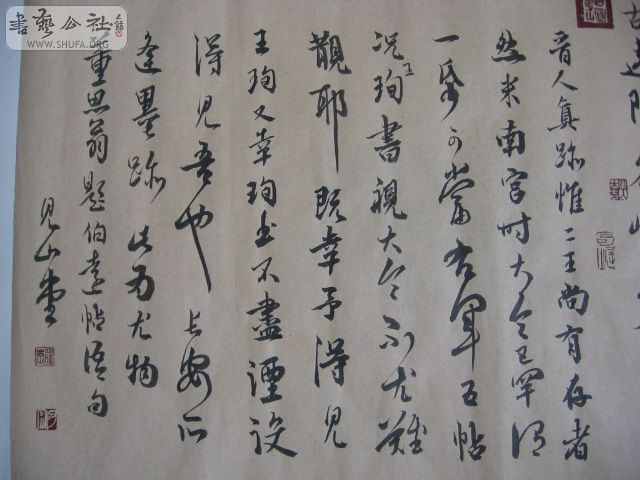 書藝公社
WWW.SHUFA.ORG
古遠隔嶺
晉人眞跡惟二王尚有存者
然米南宮時大令已罕謂
一帋可當右軍五帖
況王珣書視大令不尤難
覯耶既幸予得見
王珣又幸珣書不盡湮沒
得見吾也長安所
逢墨跡此為尤物
董思翁題伯遠帖語句
見山堂